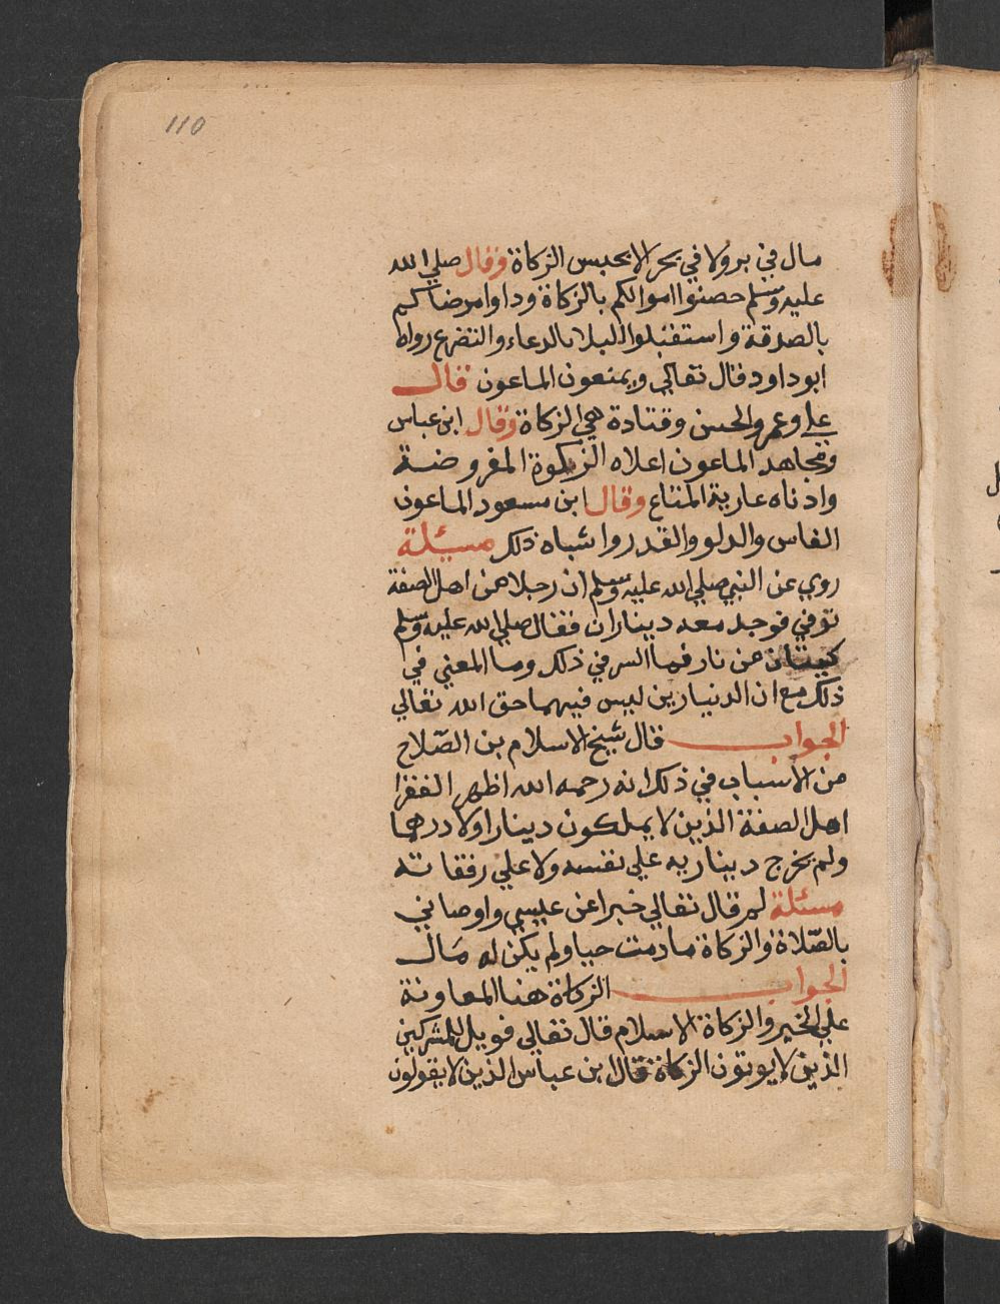 110
مال في بر ولا في بحر الا بحبس الزكاة وقال صلي الله
عليه وسلم حصنوا اموالكم بالزكاة وداوا مرضاكم
بالصدقة واستقبلوا البلا بالدعاء والتضرع رواه
ابو داود قال تعالي ويمنعون الماعون قال
علي وعمر والحسن وقتادة هي الزكاة وقال ابن عباس
ومجاهد الماعون اعلاه الزكوة المفروضة
وادناه عارية المتاع وقال ابن مسعود الماعون
الفاس والدلو والقدر واشباه ذلك مسيئلة
روي عن النبي صلي الله عليه وسلم ان رجلا من اهل الصفة
توفي فوجد معه ديناران فقال صلي الله عليه وسلم
كيتان من نار فما السر في ذلك وما المعني في
ذلك مع ان الدنيارين ليس فيهما حق الله تعالي
الجواب قال شيخ الاسلام بن الصّلاح
من الاسباب في ذلك انه رحمه الله اظهر الفقرا
اهل الصفة الذين لا يملكون دينارا ولا درهما
ولم يخرج ديناريه علي نفسه ولا علي رفقاته
مسئلة لم قال تعالي خبرا عن عيسي واوصاني
بالصّلاة والزكاة ما دمت حيا ولم يكن له مال
الجواب الزكاة هنا المعاونة
علي الخير والزكاة الاسلام قال تعالي فويل للمشركين
الذين لا يوتون الزكاة قال ابن عباس الذين لا يقولون